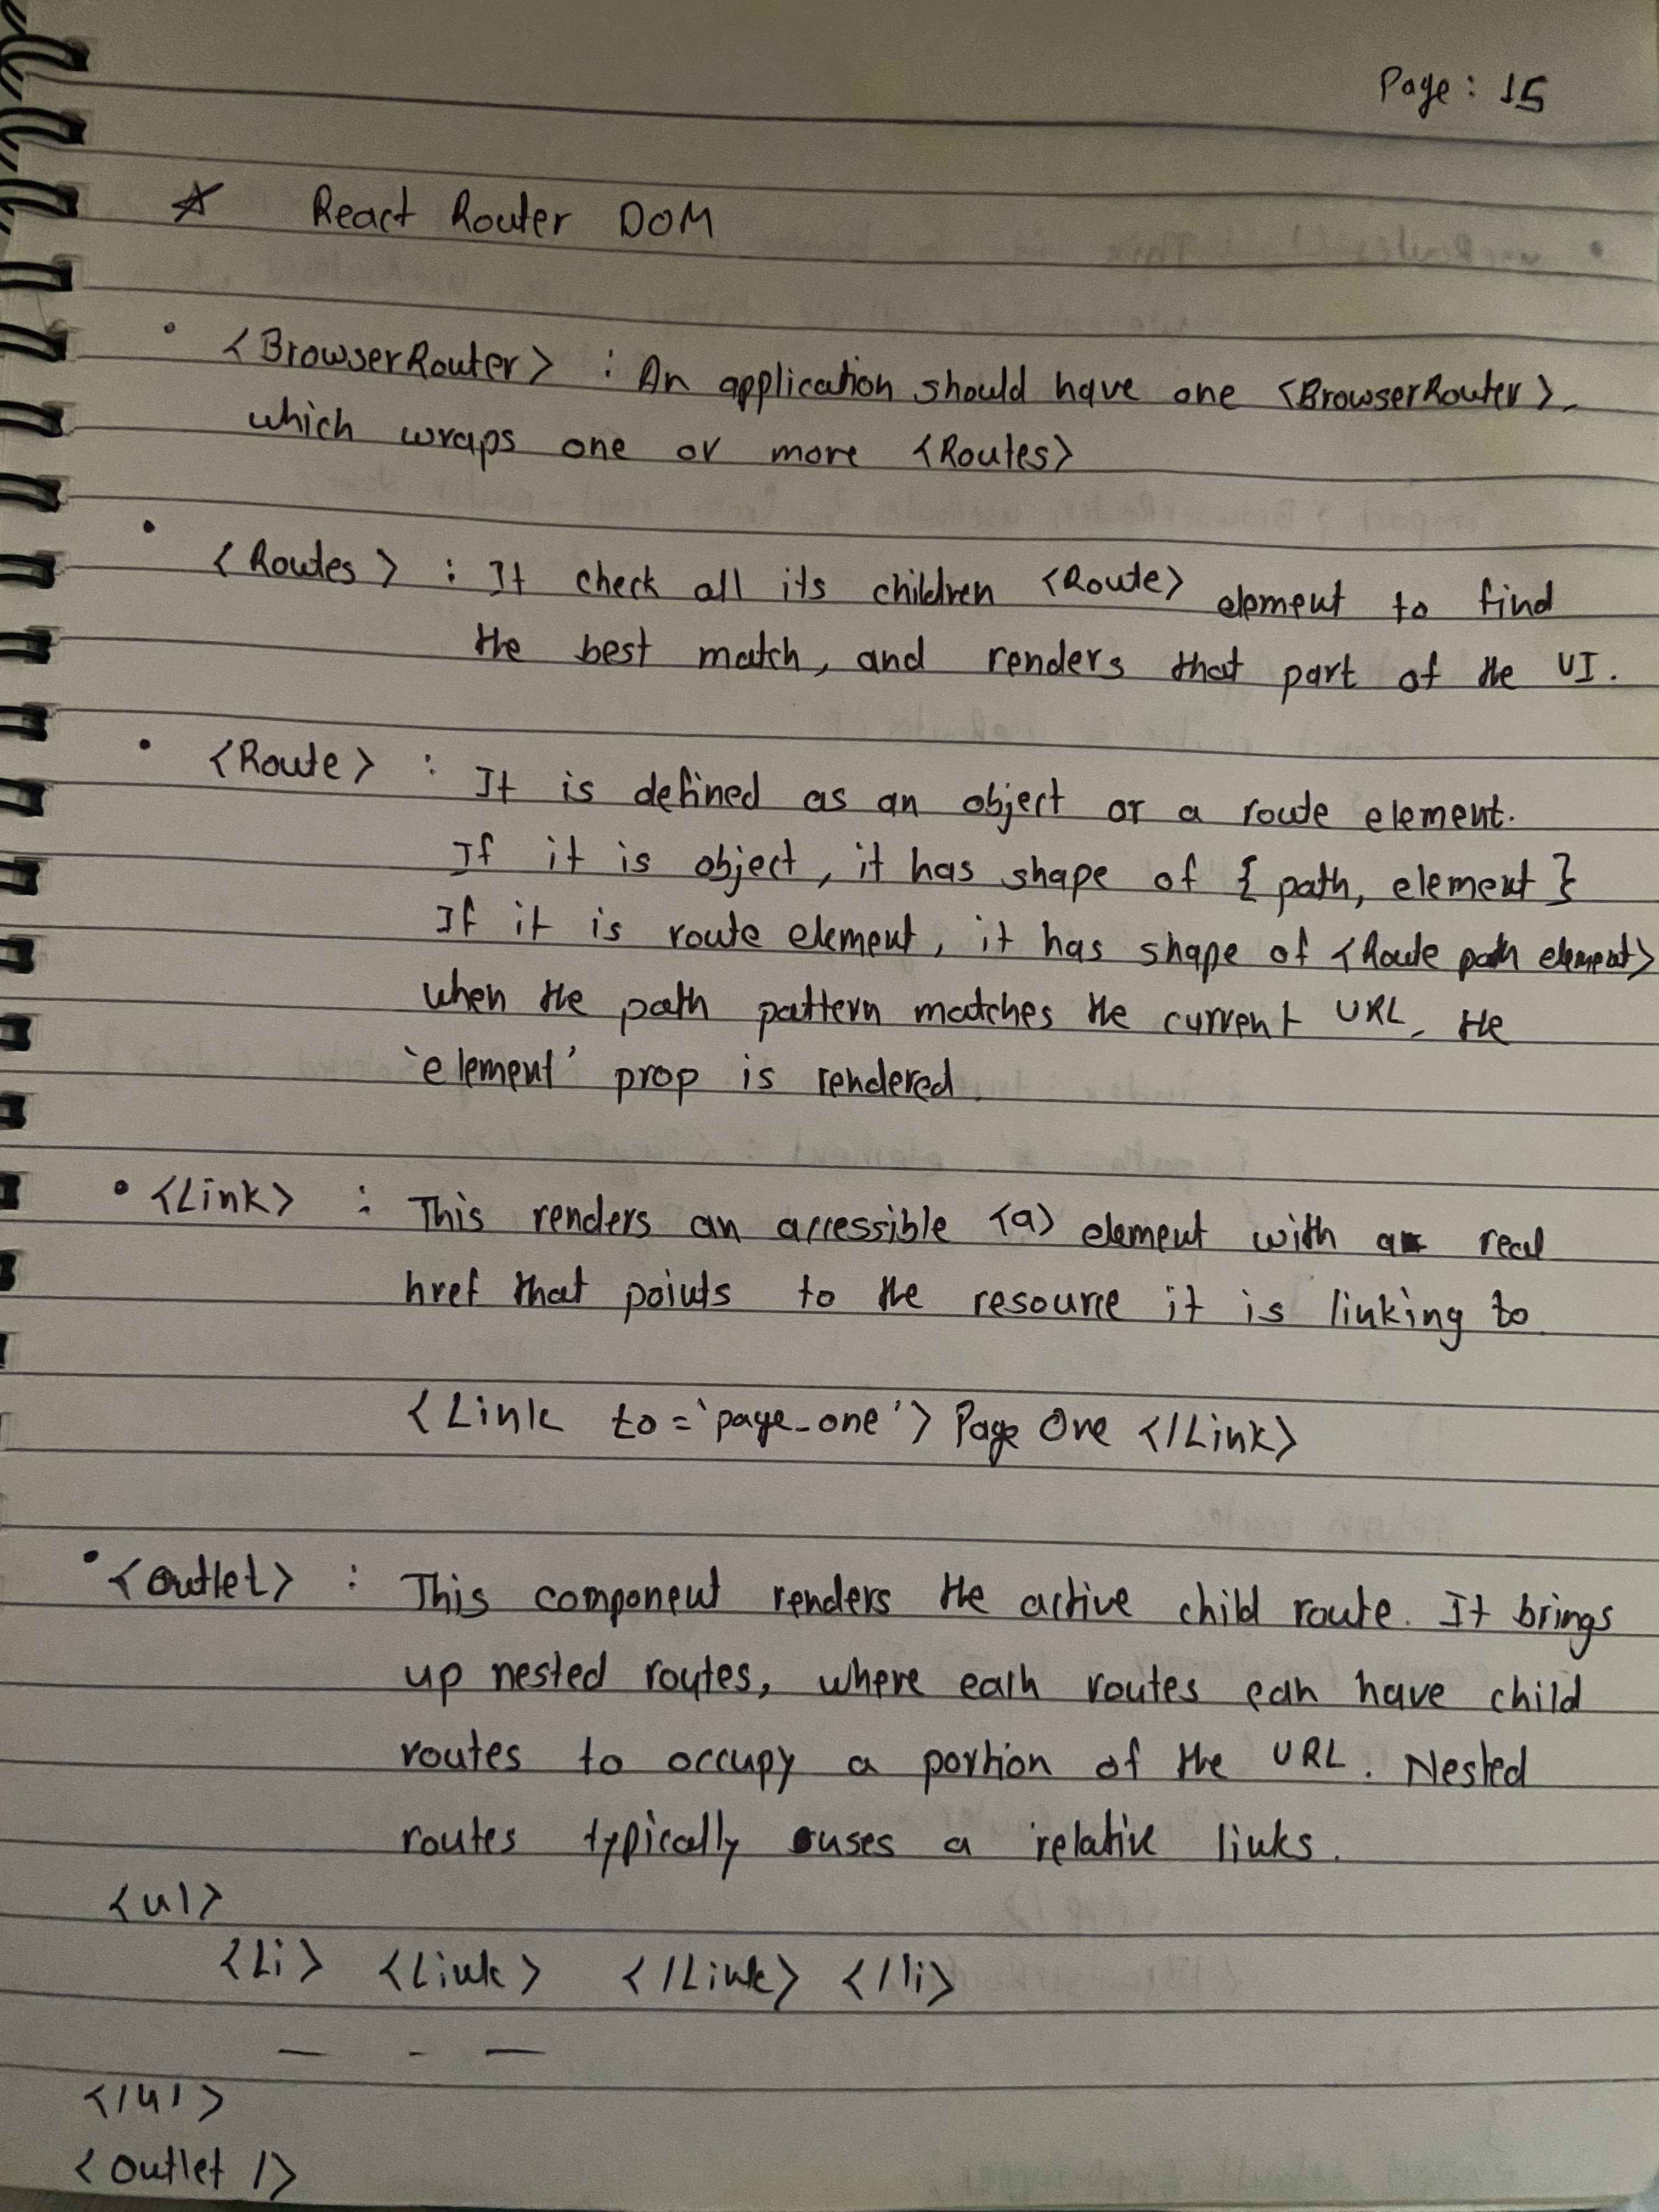 Page: 15
☆ React Router DOM
• <BrowserRouter> : An application should have one <BrowserRouter>,
which wraps one or more <Routes>
• <Routes> : It check all its children <Route> element to find
the best match, and renders that part of the UI.
• <Route> : It is defined as an object or a route element.
If it is object, it has shape of { path, element }
If it is route element, it has shape of <Route path element>
when the path pattern matches the current URL, the
'element' prop is rendered.
• <Link> : This renders an accessible <a> element with a real
href that points to the resource it is linking to.
<Link to='page_one'> Page One </Link>
• <outlet> : This component renders the active child route. It brings
up nested routes, where each routes can have child
routes to occupy a portion of the URL. Nested
routes typically uses a relative links.
<ul>
<Li> <Link> </Link> </li>
— - —
</ul>
<outlet />